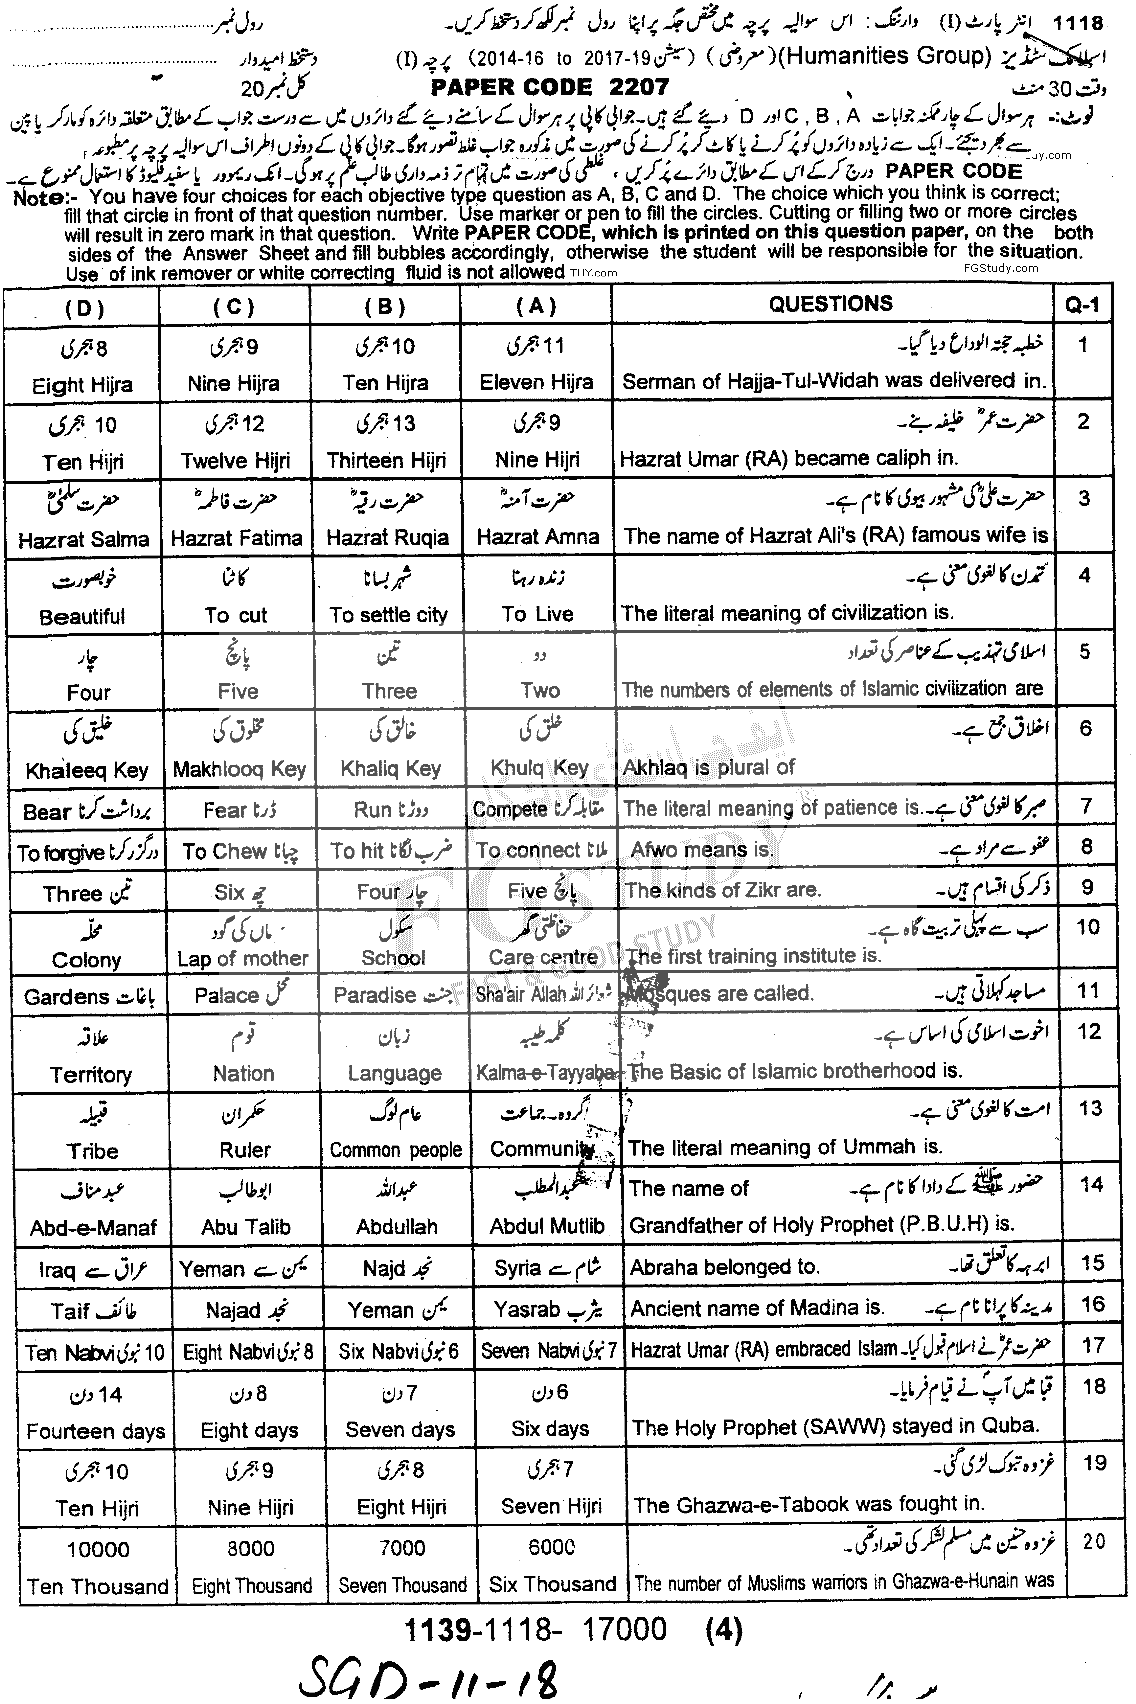 1118 انٹر پارٹ (I) وارننگ: اس سوالیہ پرچہ میں مختص جگہ پر اپنا رول نمبر لکھ کر دستخط کریں۔ رول نمبر
اسلامک سٹڈیز (Humanities Group) (معروضی) (سیشن 2014-16 to 2017-19) پرچہ (I) دستخط امیدوار
وقت 30 منٹ PAPER CODE 2207 کل نمبر 20
نوٹ:- ہر سوال کے چار ممکنہ جوابات A , B , C اور D دیئے گئے ہیں۔ جوابی کاپی پر ہر سوال کے سامنے دیئے گئے دائروں میں سے درست جواب کے مطابق متعلقہ دائرہ کو مارکر یا پین
سے بھر دیجئے۔ ایک سے زیادہ دائروں کو پُر کرنے یا کاٹ کر پُر کرنے کی صورت میں مذکورہ جواب غلط تصور ہوگا۔ جوابی کاپی کے دونوں اطراف اس سوالیہ پرچہ پر مطبوعہ
PAPER CODE درج کر کے اس کے مطابق دائرے پُر کریں، غلطی کی صورت میں تمام تر ذمہ داری طالب علم پر ہوگی۔ انک ریموور یا سفید فلیوڈ کا استعمال ممنوع ہے۔
Note:- You have four choices for each objective type question as A, B, C and D. The choice which you think is correct;
fill that circle in front of that question number. Use marker or pen to fill the circles. Cutting or filling two or more circles
will result in zero mark in that question. Write PAPER CODE, which is printed on this question paper, on the both
sides of the Answer Sheet and fill bubbles accordingly, otherwise the student will be responsible for the situation.
Use of ink remover or white correcting fluid is not allowed FGStudy.com
(D) (C) (B) (A) QUESTIONS Q-1
8 ہجری 9 ہجری 10 ہجری 11 ہجری خطبہ حجتہ الوداع دیا گیا۔ 1
Eight Hijra Nine Hijra Ten Hijra Eleven Hijra Serman of Hajja-Tul-Widah was delivered in.
10 ہجری 12 ہجری 13 ہجری 9 ہجری حضرت عمرؓ خلیفہ بنے۔ 2
Ten Hijri Twelve Hijri Thirteen Hijri Nine Hijri Hazrat Umar (RA) became caliph in.
حضرت سلمیٰؓ حضرت فاطمہؓ حضرت رقیہؓ حضرت آمنہؓ حضرت علیؓ کی مشہور بیوی کا نام ہے۔ 3
Hazrat Salma Hazrat Fatima Hazrat Ruqia Hazrat Amna The name of Hazrat Ali's (RA) famous wife is
خوبصورت کاٹنا شہر بسانا زندہ رہنا تمدن کا لغوی معنی ہے۔ 4
Beautiful To cut To settle city To Live The literal meaning of civilization is.
چار پانچ تین دو اسلامی تہذیب کے عناصر کی تعداد 5
Four Five Three Two The numbers of elements of Islamic civilization are
خلیق کی مخلوق کی خالق کی خلق کی اخلاق جمع ہے۔ 6
Khaleeq Key Makhlooq Key Khaliq Key Khulq Key Akhlaq is plural of
Bear برداشت کرنا Fear ڈرنا Run دوڑنا Compete مقابلہ کرنا The literal meaning of patience is. صبر کا لغوی معنی ہے۔ 7
To forgive درگزر کرنا To Chew چبانا To hit ضرب لگانا To connect ملانا Afwo means is. عفو سے مراد ہے۔ 8
Three تین Six چھ Four چار Five پانچ The kinds of Zikr are. ذکر کی اقسام ہیں۔ 9
محلّہ ماں کی گود سکول حفاظتی گھر سب سے پہلی تربیت گاہ ہے۔ 10
Colony Lap of mother School Care centre The first training institute is.
Gardens باغات Palace محل Paradise جنت Sha'air Allah شعائر اللہ Mosques are called. مساجد کہلاتی ہیں۔ 11
علاقہ قوم زبان کلمہ طیبہ اخوت اسلامی کی اساس ہے۔ 12
Territory Nation Language Kalma-e-Tayyaba The Basic of Islamic brotherhood is.
قبیلہ حکمران عام لوگ گروہ۔ جماعت امت کا لغوی معنی ہے۔ 13
Tribe Ruler Common people Community The literal meaning of Ummah is.
عبد مناف ابو طالب عبداللہ عبدالمطلب The name of حضور ﷺ کے دادا کا نام ہے۔ 14
Abd-e-Manaf Abu Talib Abdullah Abdul Mutlib Grandfather of Holy Prophet (P.B.U.H) is.
Iraq عراق سے Yeman یمن سے Najd نجد Syria شام سے Abraha belonged to. ابرہہ کا تعلق تھا۔ 15
Taif طائف Najad نجد Yeman یمن Yasrab یثرب Ancient name of Madina is. مدینہ کا پرانا نام ہے۔ 16
Ten Nabvi 10 نبوی Eight Nabvi 8 نبوی Six Nabvi 6 نبوی Seven Nabvi 7 نبوی Hazrat Umar (RA) embraced Islam حضرت عمرؓ نے اسلام قبول کیا۔ 17
14 دن 8 دن 7 دن 6 دن قبا میں آپؐ نے قیام فرمایا۔ 18
Fourteen days Eight days Seven days Six days The Holy Prophet (SAWW) stayed in Quba.
10 ہجری 9 ہجری 8 ہجری 7 ہجری غزوہ تبوک لڑی گئی۔ 19
Ten Hijri Nine Hijri Eight Hijri Seven Hijri The Ghazwa-e-Tabook was fought in.
10000 8000 7000 6000 غزوہ حنین میں مسلم لشکر کی تعداد تھی۔ 20
Ten Thousand Eight Thousand Seven Thousand Six Thousand The number of Muslims warriors in Ghazwa-e-Hunain was
1139-1118- 17000 (4)
SGD-11-18
FG STUDY
FAST & GOOD STUDY